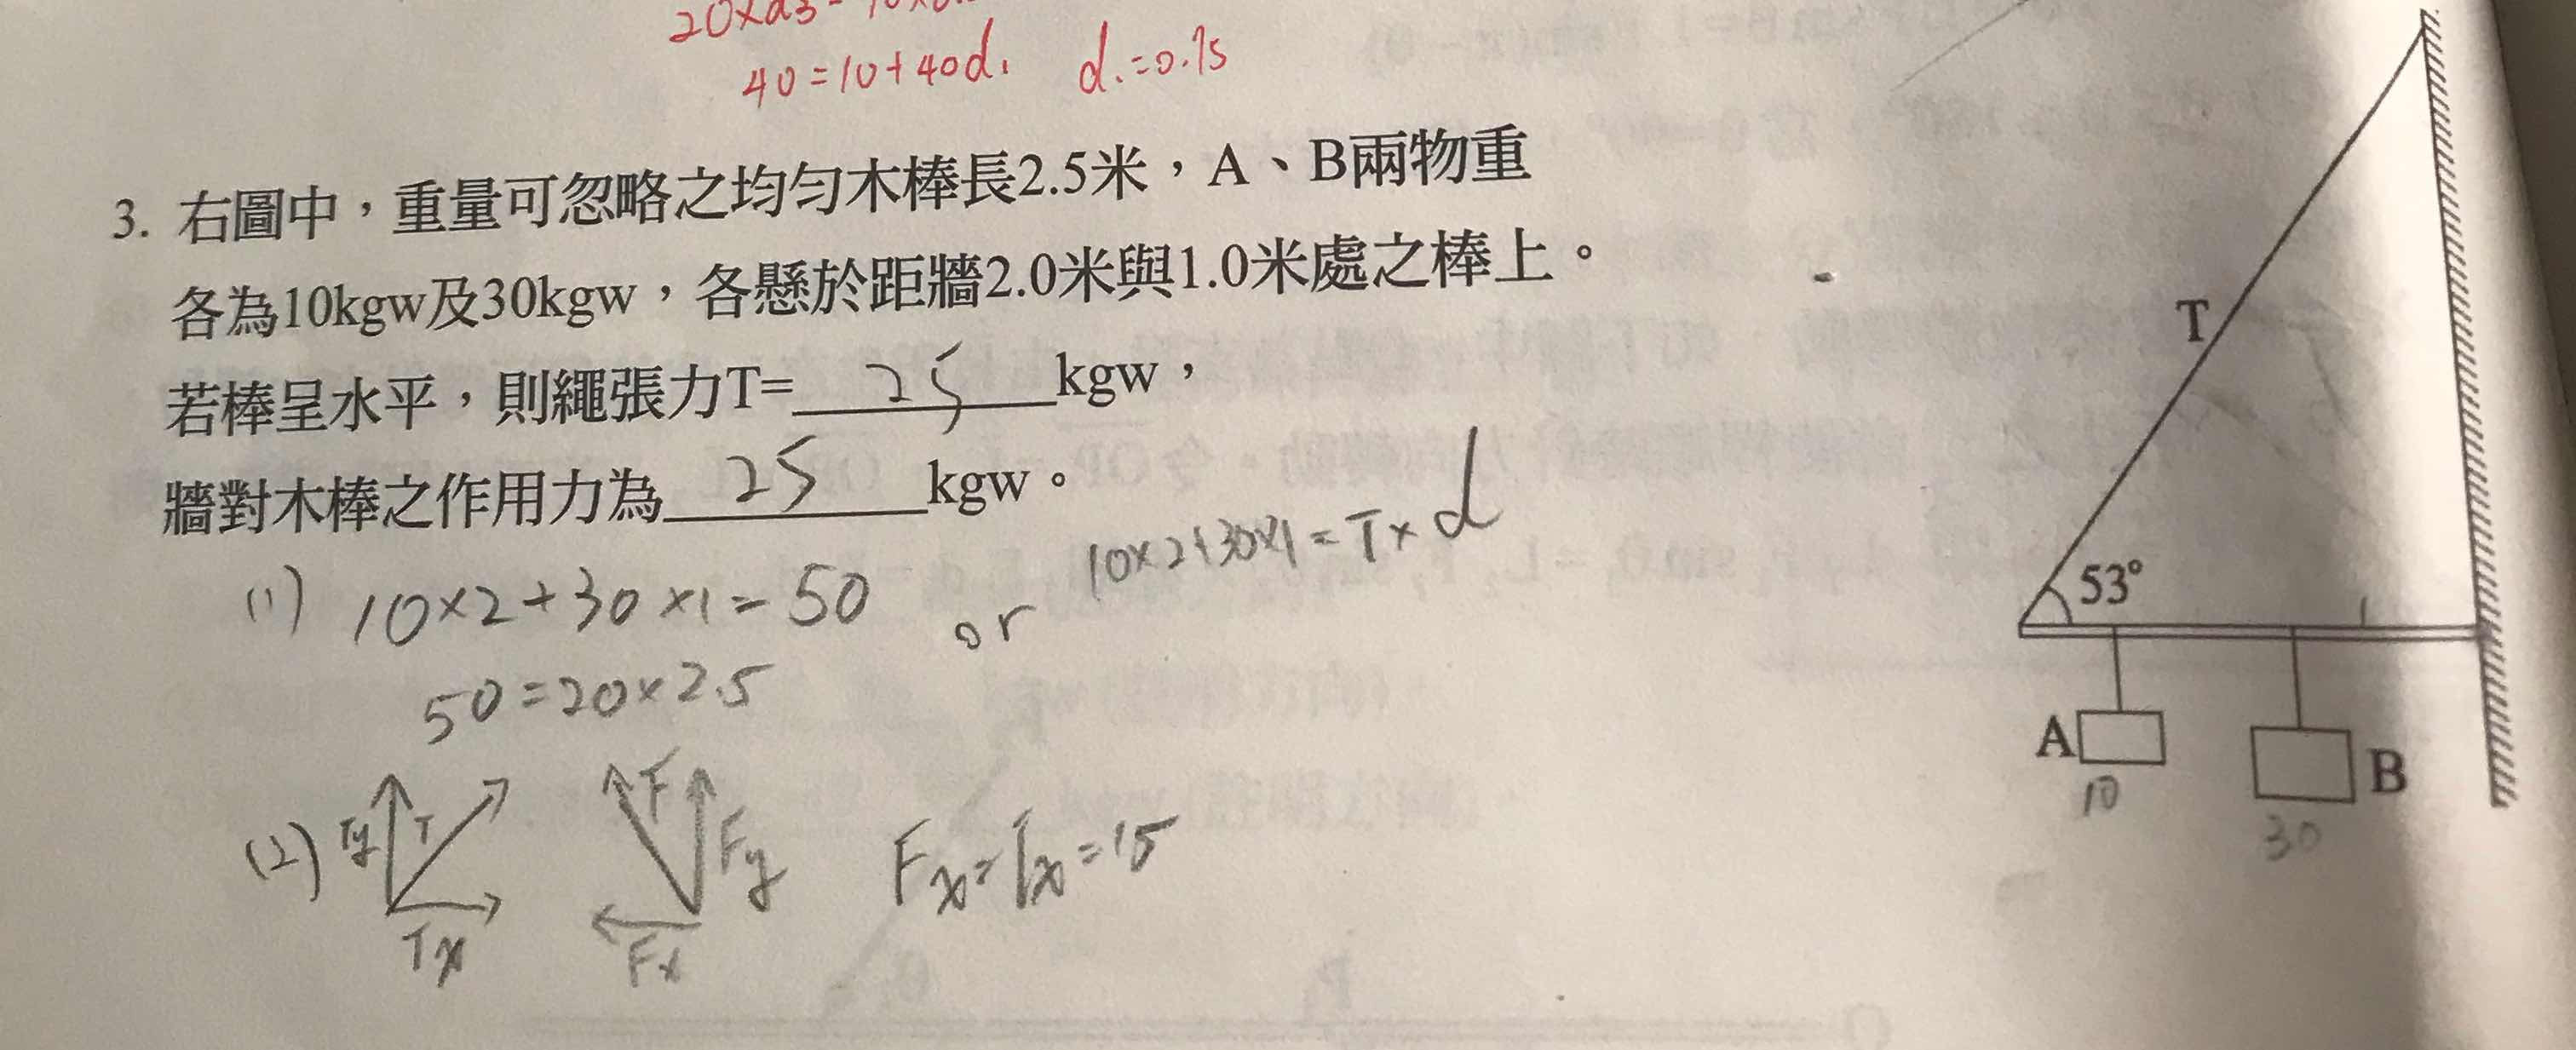 40=10+40d₁ d₁=0.75
3. 右圖中，重量可忽略之均勻木棒長2.5米，A、B兩物重
各為10kgw及30kgw，各懸於距牆2.0米與1.0米處之棒上。
若棒呈水平，則繩張力T= 25 kgw，
牆對木棒之作用力為 25 kgw。
(1) 10×2+30×1=50 or 10×2+30×1=T×d
50=20×2.5
(2) Ty T Tx F Fy Fx Fx=Tx=15
T
53°
A
10
B
30